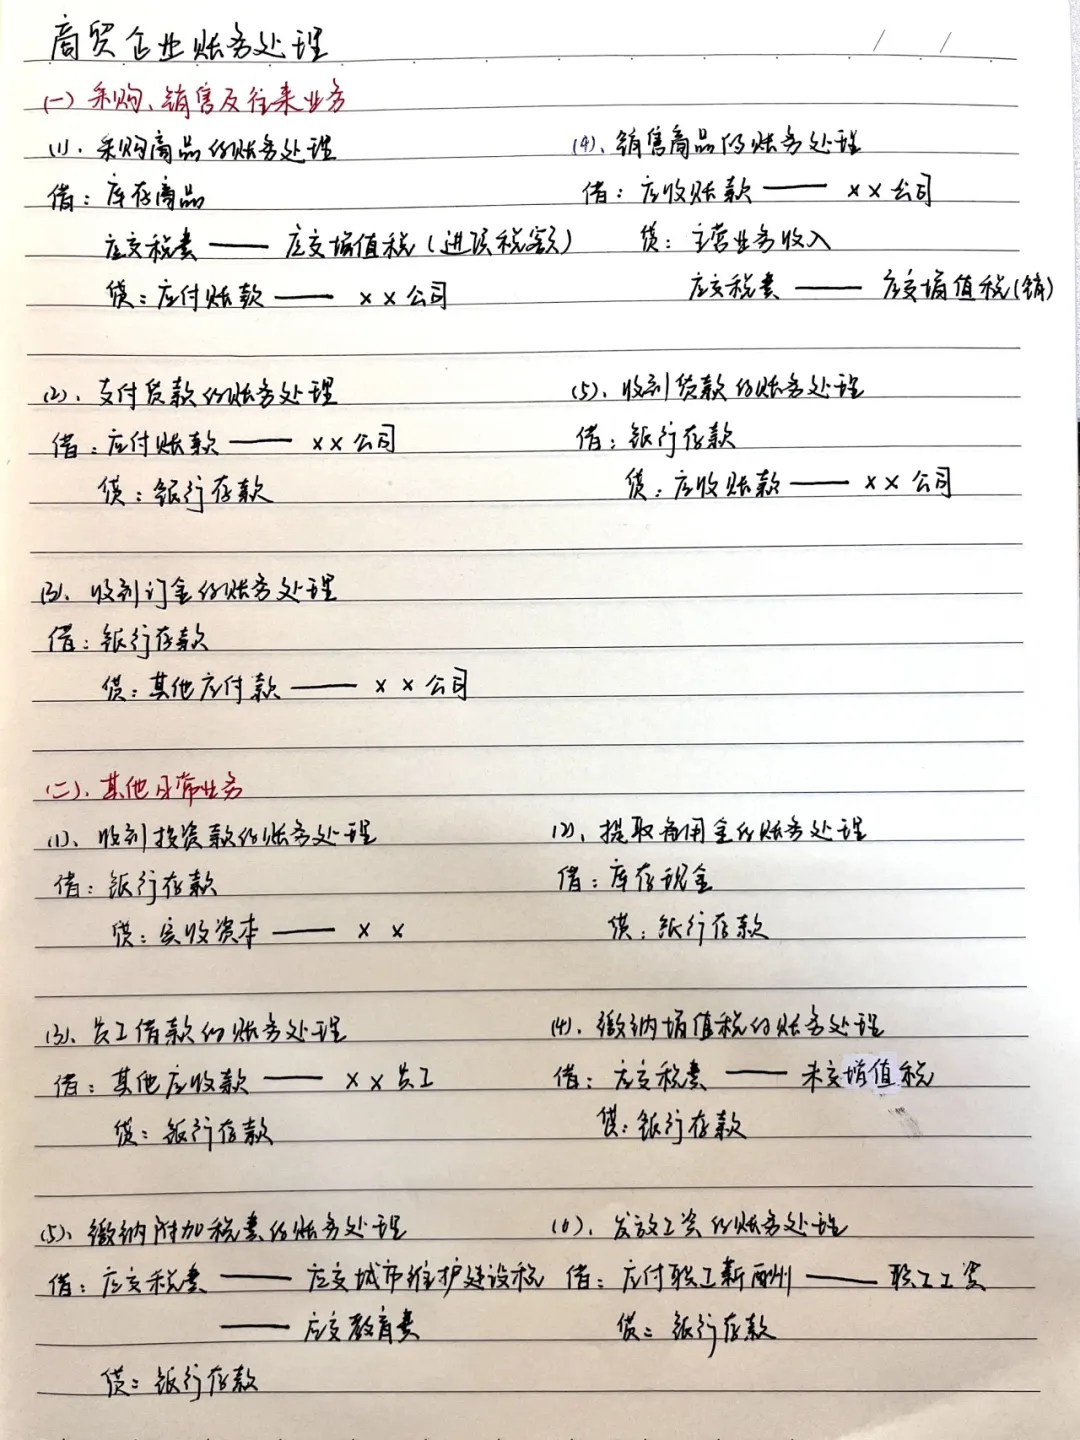 商贸企业账务处理
(一) 采购、销售及往来业务
(1)、采购商品的账务处理
借：库存商品
应交税费 —— 应交增值税(进项税额)
贷：应付账款 —— ××公司
(4)、销售商品的账务处理
借：应收账款 —— ××公司
贷：主营业务收入
应交税费 —— 应交增值税(销)
(2)、支付货款的账务处理
借：应付账款 —— ××公司
贷：银行存款
(5)、收到货款的账务处理
借：银行存款
贷：应收账款 —— ××公司
(3)、收到订金的账务处理
借：银行存款
贷：其他应付款 —— ××公司
(二)、其他日常业务
(1)、收到投资款的账务处理
借：银行存款
贷：实收资本 —— ××
(2)、提取备用金的账务处理
借：库存现金
贷：银行存款
(3)、员工借款的账务处理
借：其他应收款 —— ××员工
贷：银行存款
(4)、缴纳增值税的账务处理
借：应交税费 —— 未交增值税
贷：银行存款
(5)、缴纳附加税费的账务处理
借：应交税费 —— 应交城市维护建设税
—— 应交教育费
贷：银行存款
(6)、发放工资的账务处理
借：应付职工薪酬 —— 职工工资
贷：银行存款